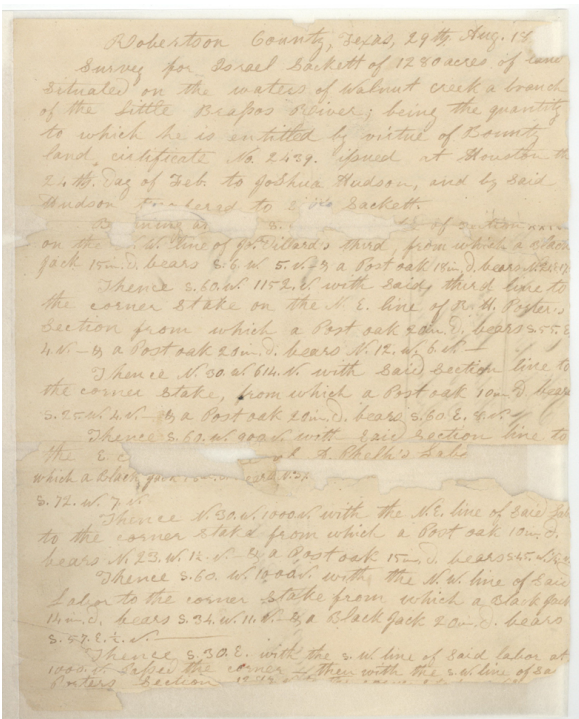 Robertson County, Texas, 29th, Aug. 18
Survey for Israel Sackett of 1280 acres of land
Situated on the waters of walnut creek a branch
of the Little Brassos River; being the quantity
to which he is entitled by virtue of County
land certificate No. 2439. issued at Houston th
24th. Day of Feb. to Joshua Hudson, and by Said
Hudson to Sackett.
on the N. line of Jo. Dillard's third, from which a Black
Jack 15 in. d. bears S. 6. W. 5. V. & a Post oak 18 in. d. bears
Thence S. 60. W. 1152. V. with Said third line to
the corner Stake on the N. E. line of Porter,s
Section from which a Post oak 20 in. d. bears S. 55. E
4. V. — & a Post oak 20 in. d. bears N. 12. W. 6. V. —
Thence N. 30. W. 614. V. with Said Section line to
the corner Stake, from which a Post oak 10 in. D. bears
S. 25. W. 4. V. — & a Post oak 20 in. d. bears S. 60. E. 8. V.
Thence S. 60. W. 900. V. with Said Section line to
the E. c
which a Black
S. 72. W. 7. V.
Thence N. 30. W. 1000. V. with the N. E. line of Said
to the corner Stake from which a Post oak 10 in. d.
bears N. 23. W. 12. V. & a Post oak 15 in. d. bears S. 45.
Thence S. 60. W. 1000. V. with the N. W. line of Said
Labor to the corner Stake from which a Black Jack
14 in. d. bears S. 34. W. 11. V. & a Black Jack 20 in. d. bears
S. 57. E. ½. V. —
Thence S. 30. E. with the S. W. line of Said labor at
1000. V. the corner then with the S. W. line of Sa
Porters Section